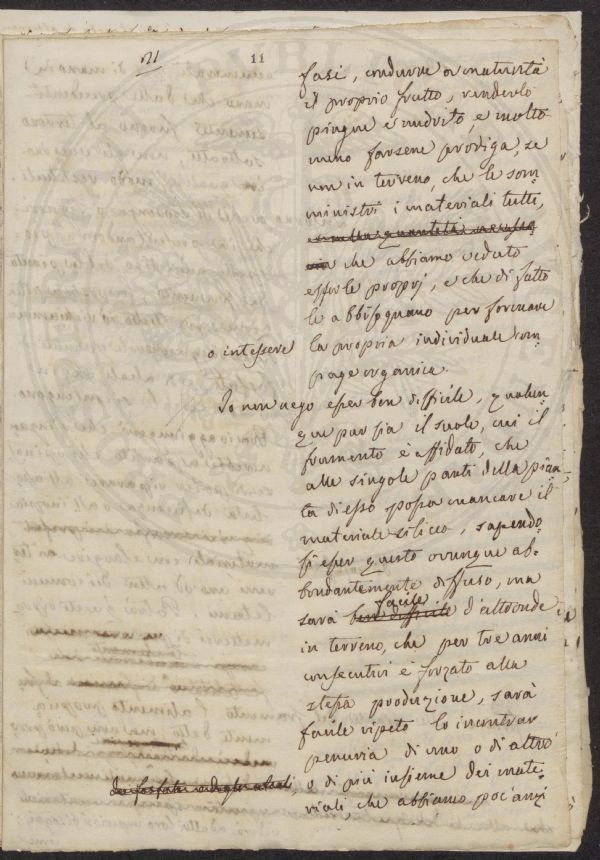 21 11
fasi, condurre a maturità
il proprio frutto, renderlo
pingue e nudrito, e molto
meno farsene prodiga, se
non in terreno, che le som=
ministri i materiali tutti,
e nella quantità necessa
ria che abbiamo veduto
esserle proprj, e che di fatto
le abbisognano per formare
o intessere la propria individuale com=
page organica.
Io non nego esser ben difficile, qualun
que pur sia il suolo, cui il
frumento è affidato, che
alle singole parti della pian=
ta di esso possa mancare il
materiale siliceo, sapendo
si esser questo ovunque ab=
bondantemente diffuso, ma
facile
sarà ben difficile d'altronde
in terreno, che per tre anni
consecutivi è forzato alla
stessa produzione, sarà
facile ripeto lo incontrar
penuria di uno o di altro
dei fosfati o degli alcali o di più insieme dei mate=
riali, che abbiamo poc'anzi